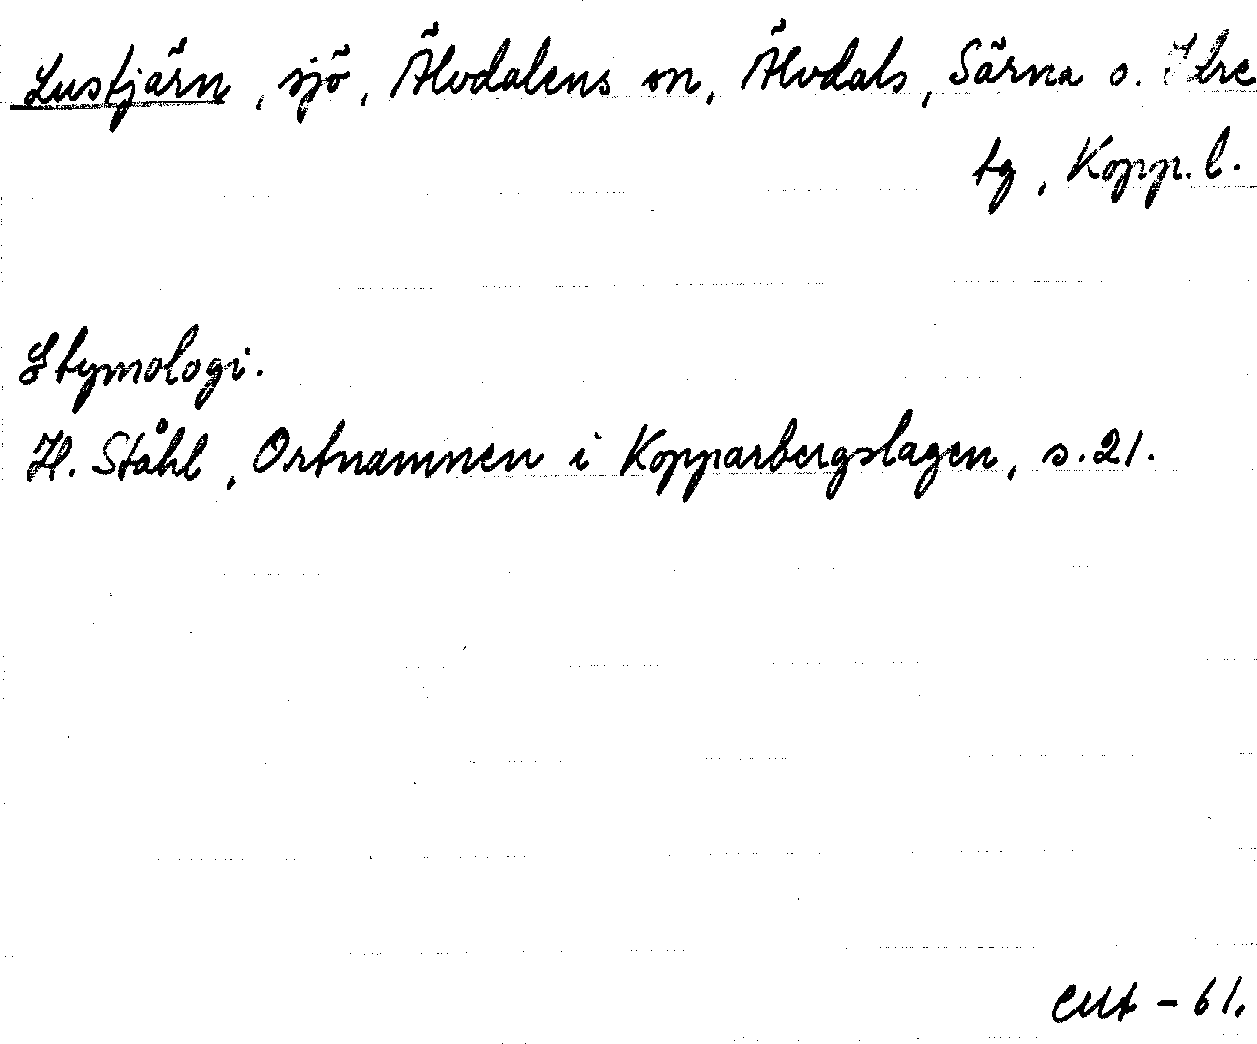 Lustjärn, sjö, Älvdalens sn, Älvdals, Särna o. Idre
tg, Kopp. l.
Etymologi.
H. Ståhl, Ortnamnen i Kopparbergslagen, s. 21.
- 61.